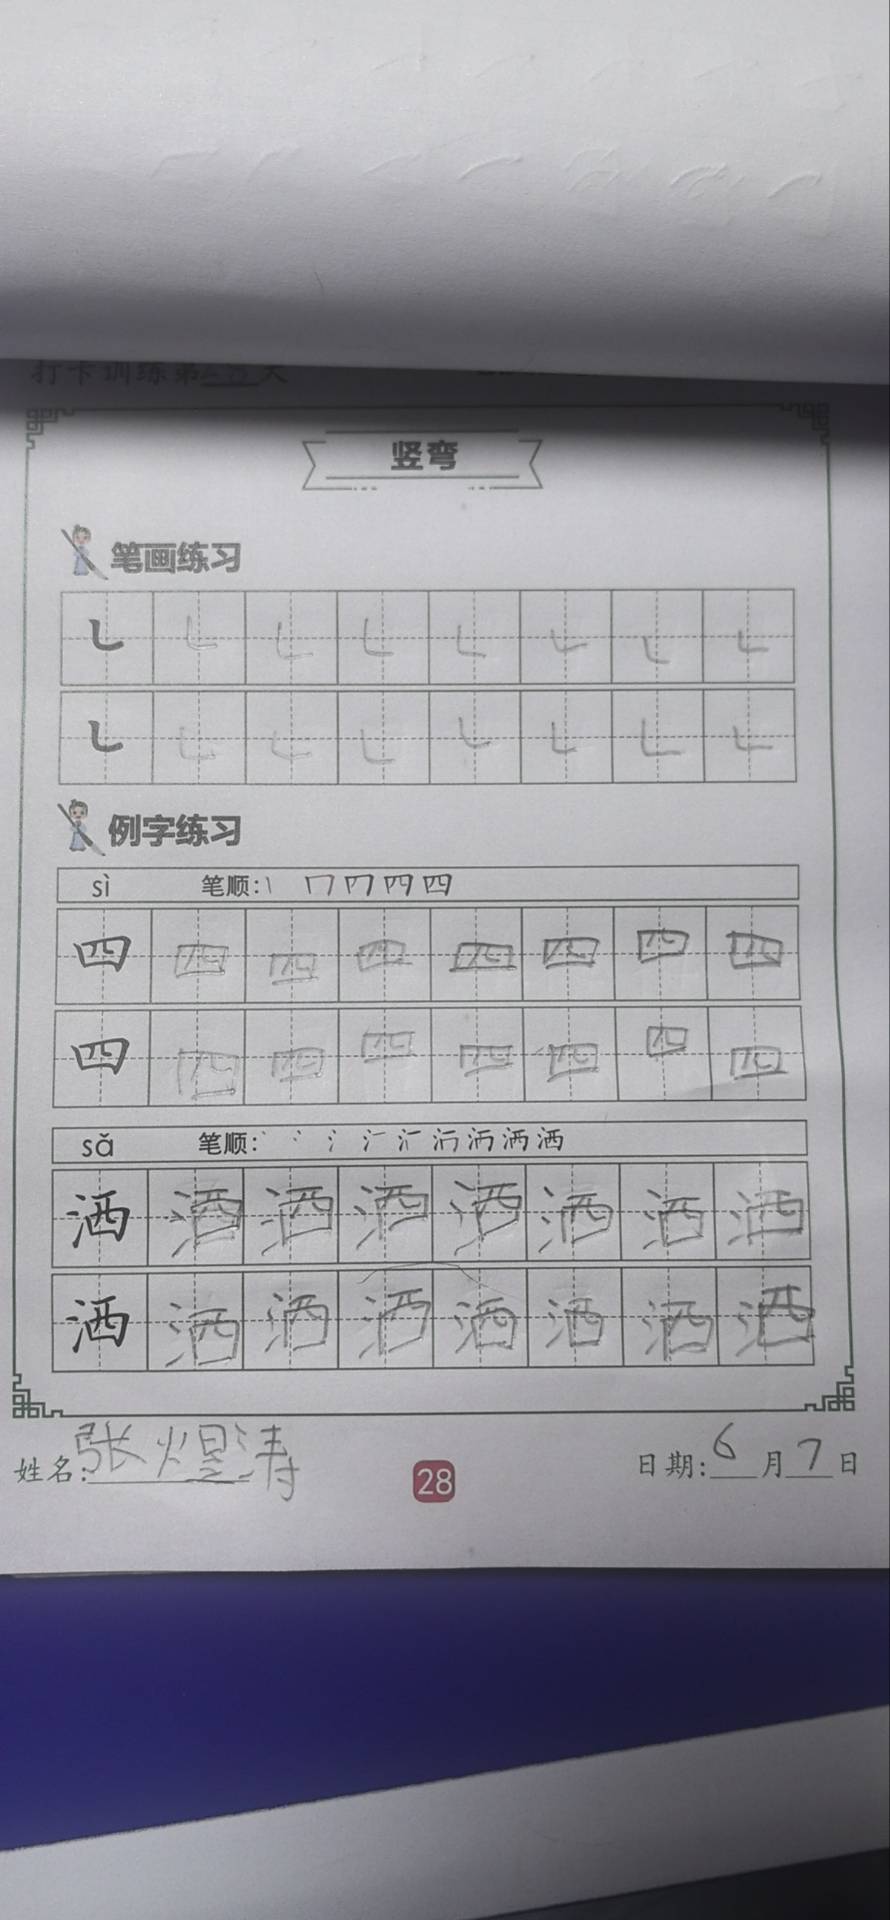 打卡训练第 天
竖弯
笔画练习
㇄ ㇄ ㇄ ㇄ ㇄ ㇄ ㇄ ㇄
㇄ ㇄ ㇄ ㇄ ㇄ ㇄ ㇄ ㇄
例字练习
sì 笔顺:丨 冂 𠘨 四 四
四 四 四 四 四 四 四 四
四 四 四 四 四 四 四 四
sǎ 笔顺:丶 冫 氵 汀 洒 洒 洒
洒 洒 洒 洒 洒 洒 洒 洒
洒 洒 洒 洒 洒 洒 洒 洒
姓名:张煜涛 28 日期:6月7日